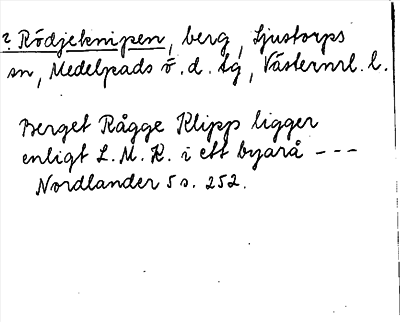 ? Rödjeknipen, berg, Ljustorps
sn, Medelpads ö. d. tg, Västernrl. l.
Berget Rågge Klipp ligger
enligt L. M. K. i ett byarå ---
Nordlander 5 s. 252.